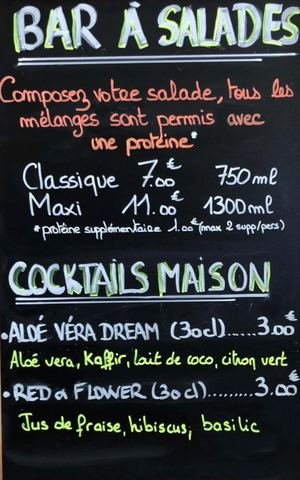 BAR À SALADES
Composez votre salade, tous les
mélanges sont permis avec
une protéine*
Classique 7.00€ 750ml
Maxi 11.00€ 1300ml
*protéine supplémentaire 1.00€ (max 2 supp/pers)
COCKTAILS MAISON
•ALOÉ VÉRA DREAM (30cl)......3.00€
Aloé vera, Kaffir, lait de coco, citron vert
•RED a FLOWER (30cl)........3.00€
Jus de fraise, hibiscus, basilic